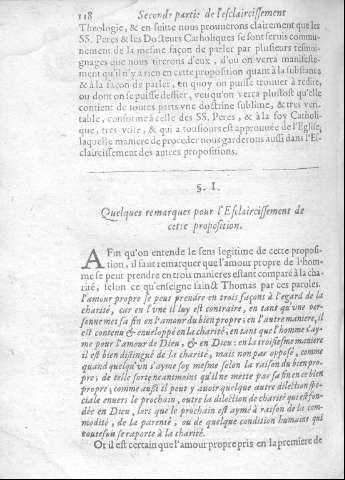 118 Seconde partie de l'esclaircissement
Theologie, & en suitte nous prouuerons clairement que les
SS. Peres & les Docteurs Catholiques se sont seruis commu-
nement de la mesme façon de parler par plusieurs tesmoi-
gnages que nous tirerons d'eux, d'ou on verra manifeste-
ment qu'il n'y a rien en cette proposition quant à la substance
& à la façon de parler, en quoy on puisse trouuer à redire,
ou dont on se puisse deffier, veu qu'on verra plustost qu'elle
contient de toutes parts vne doctrine sublime, & tres veri-
table, conforme à celle des SS. Peres, & à la foy Catholi-
que, tres-vtile, & qui a tousiours est approuuée de l'Eglise,
laquelle maniere de proceder nous garderons aussi dans l'Es-
claircissement des autres propositions.
§. I.
Quelques remarques pour l'Esclaircissement de
cette proposition.
AFin qu'on entende le sens legitime de cette proposi-
tion, il faut remarquer que l'amour propre de l'hom-
me se peut prendre en trois manieres estant comparé à la cha-
rité, selon ce qu'enseigne sainct Thomas par ces paroles.
l'amour propre se peut prendre en trois façons à l'egard de la
charité, car en l'vne il luy est contraire, en tant qu'vne per-
sonne met sa fin en l'amour du bien propre: en l'autre maniere, il
est contenu & enueloppé en la charité, en tant que l'homme s'ay-
me pour l'amour de Dieu, & en Dieu: en la troisiesme maniere
il est bien distingué de la charité, mais non pas opposé, comme
quand quelqu'vn s'ayme soy mesme selon la raison du bien pro-
pre; de telle sorte neantmoins qu'il ne mette pas sa fin en ce bien
propre; comme aussi il peut y auoir quelque autre dilection spe-
ciale enuers le prochain, outre la dilection de charité qui est fon-
dée en Dieu, lors que le prochain est aymé à raison de la com-
modité, de la parenté, ou de quelque condition humaine qui
toutefois se raporte à la charité.
Or il est certain que l'amour propre pris en la premiere de